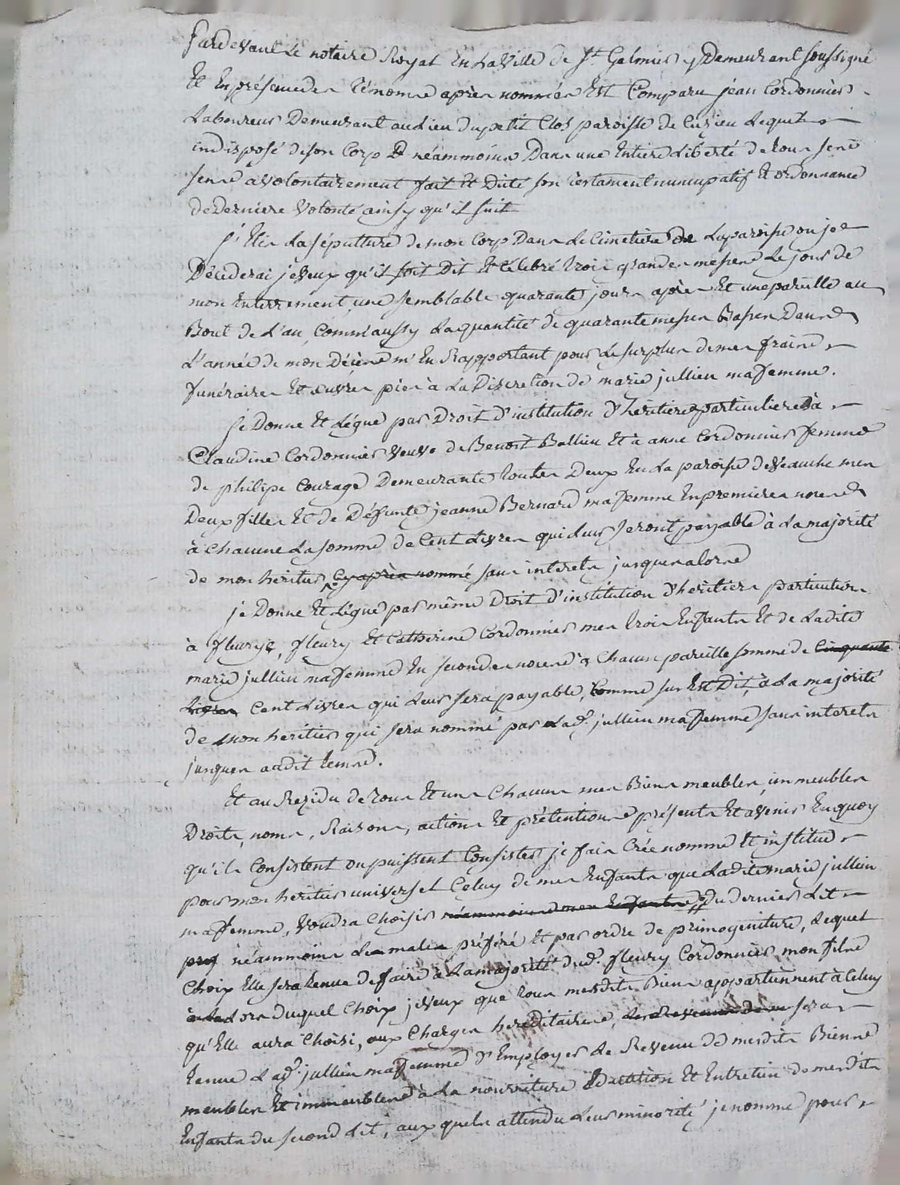 Pardevant Le notaire Royal En La Ville de St. Galmier y Demeurant soussigné
Et En présence des témoins après nommés Est Comparu jean Cordonnier
Laboureur Demeurant au lieu du petit Clos paroisse de Cuzieu Lequel
indisposé de son Corp Et néammoins Dans une Entiere Liberté de tous sens
sens a volontairement fait Et Dicté son testament nuncupatif Et ordonnance
de Derniere volonté ainsy qu'il suit
La sépulture de mon Corp Dans Le Cimetiere de La paroisse ou je
Décéderai je veux qu'il soit Dit Et Célébré trois grandes messes Le jour de
mon Enterrement, une semblable quarante jours après Et une pareille au
Bout de L'an, Comm'aussy La quantité de quarante messes Basses Dans
L'année de mon Décès m'En Rapportant pour Le surplus de mes frais
funéraires Et œuvres pies à La Discretion de marie jullien ma femme.
je Donne Et Légue par Droit D'institution D'héritieres particulieres à
Claudine Cordonnier veuve de Benoit Ballieu Et à anne Cordonnier femme
de philipe Courage Demeurantes toutes Deux En La paroisse de Veauche mes
Deux filles Et de Défunte jeanne Bernard ma femme En premieres noces
à Chacune La somme de Cent Livres qui leur seront payable à La majorité
de mon héritier Cy après nommé sans interets jusques alors
je Donne Et Légue par même Droit D'institution D'héritiers particuliers
à fleury, Et Catherine Cordonnier mes trois Enfants Et de Ladite
marie jullien ma femme En secondes noces à Chacun pareille somme de Cinquante
Livres Cent Livres qui Leur sera payable, Comme sus Est Dit, à La majorité
de mon héritier qui sera nommé par Lad. jullien ma femme sans interets
jusques audit tems.
Et au Rezidu de tous Et uns Chacuns mes Biens meubles, immeubles
Droits, noms, Raisons, actions Et prétentions présents Et avenir En quoy
qu'ils Consistent ou puissent Consister je fais Crée nomme Et institue
pour mon héritier universel Celuy de mes Enfants que Ladite marie jullien
ma femme, voudra Choisir néammoins mes Enfants Du dernier Lit
néammoins Les males préféré Et par ordre de primogeniture, Lequel
Choix Elle sera tenue de faire à La majorité dud. fleury Cordonnier mon fils
Lors duquel Choix je veux que tous mesdits Biens appartiennent à Celuy
qu'Elle aura Choisi, aux Charges hereditaires, sera
tenue Lad. jullien ma femme D'Employer Le Revenu de mesdits Biens
meubles Et immeubles à La nourriture Et Entretien de mesdits
Enfants du second Lit, aux quels attendu Leur minorité je nomme pour